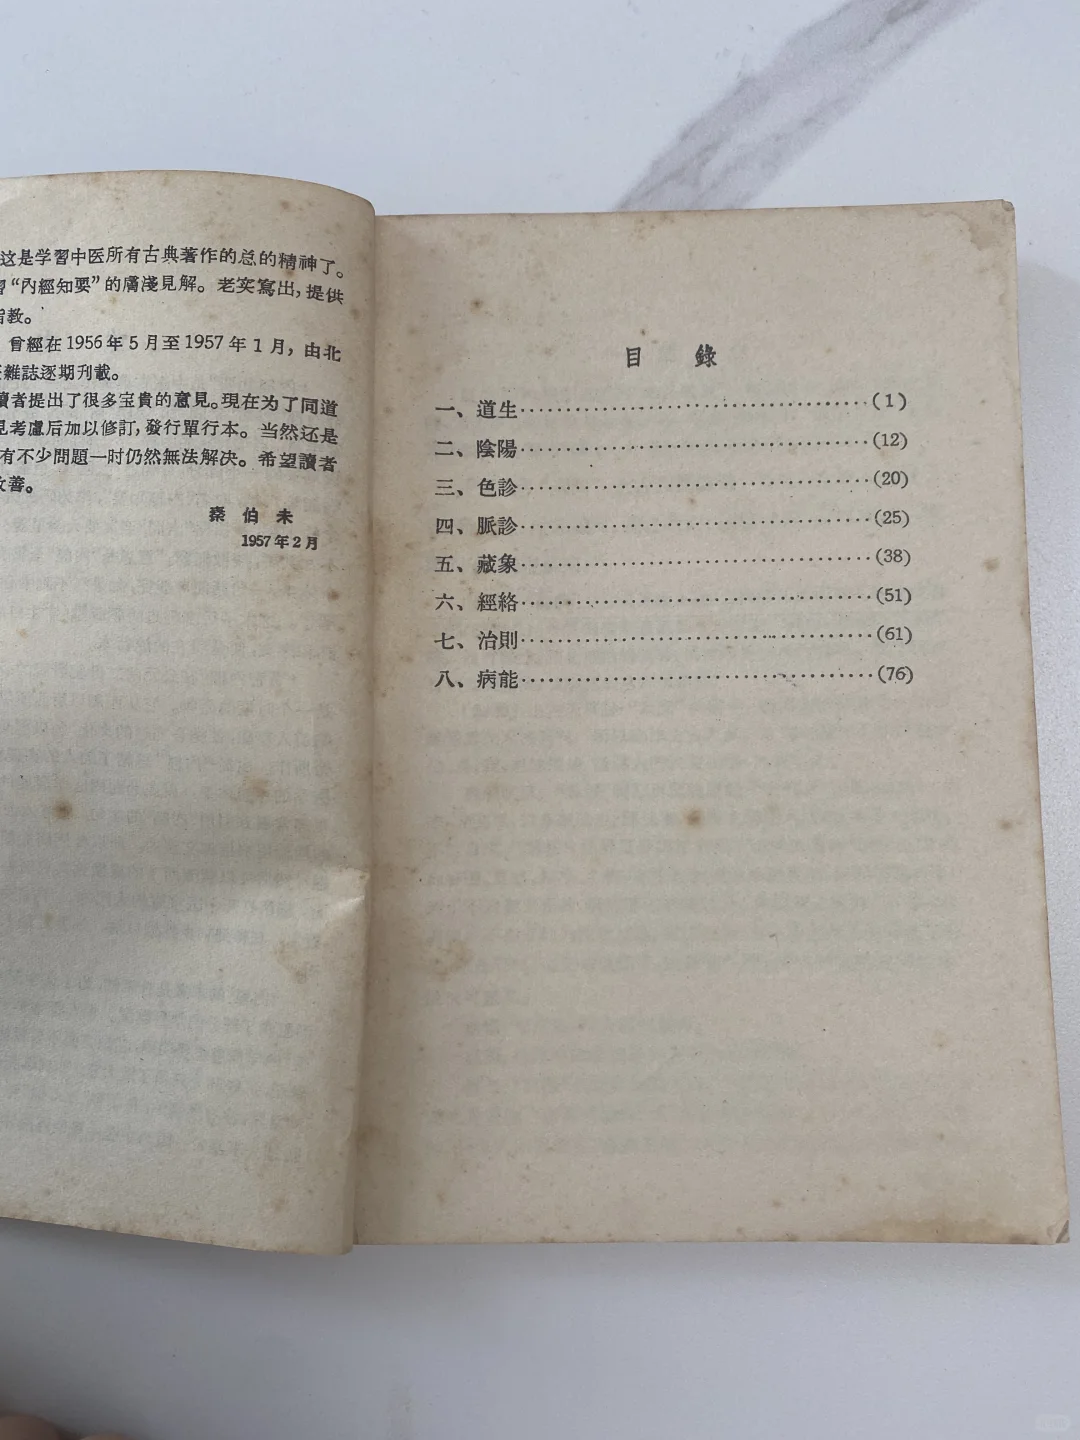 这是学習中医所有古典著作的总的精神了。
習“內經知要”的膚淺見解。老实寫出,提供
指教。
曾經在1956年5月至1957年1月,由北
雜誌逐期刊載。
讀者提出了很多宝貴的意見。現在为了同道
見考慮后加以修訂,發行單行本。当然还是
有不少問題一时仍然無法解决。希望讀者
改善。
秦伯未
1957年2月
目錄
一、道生……………………………………(1)
二、陰陽……………………………………(12)
三、色診……………………………………(20)
四、脈診……………………………………(25)
五、藏象……………………………………(38)
六、經絡……………………………………(51)
七、治則……………………………………(61)
八、病能……………………………………(76)